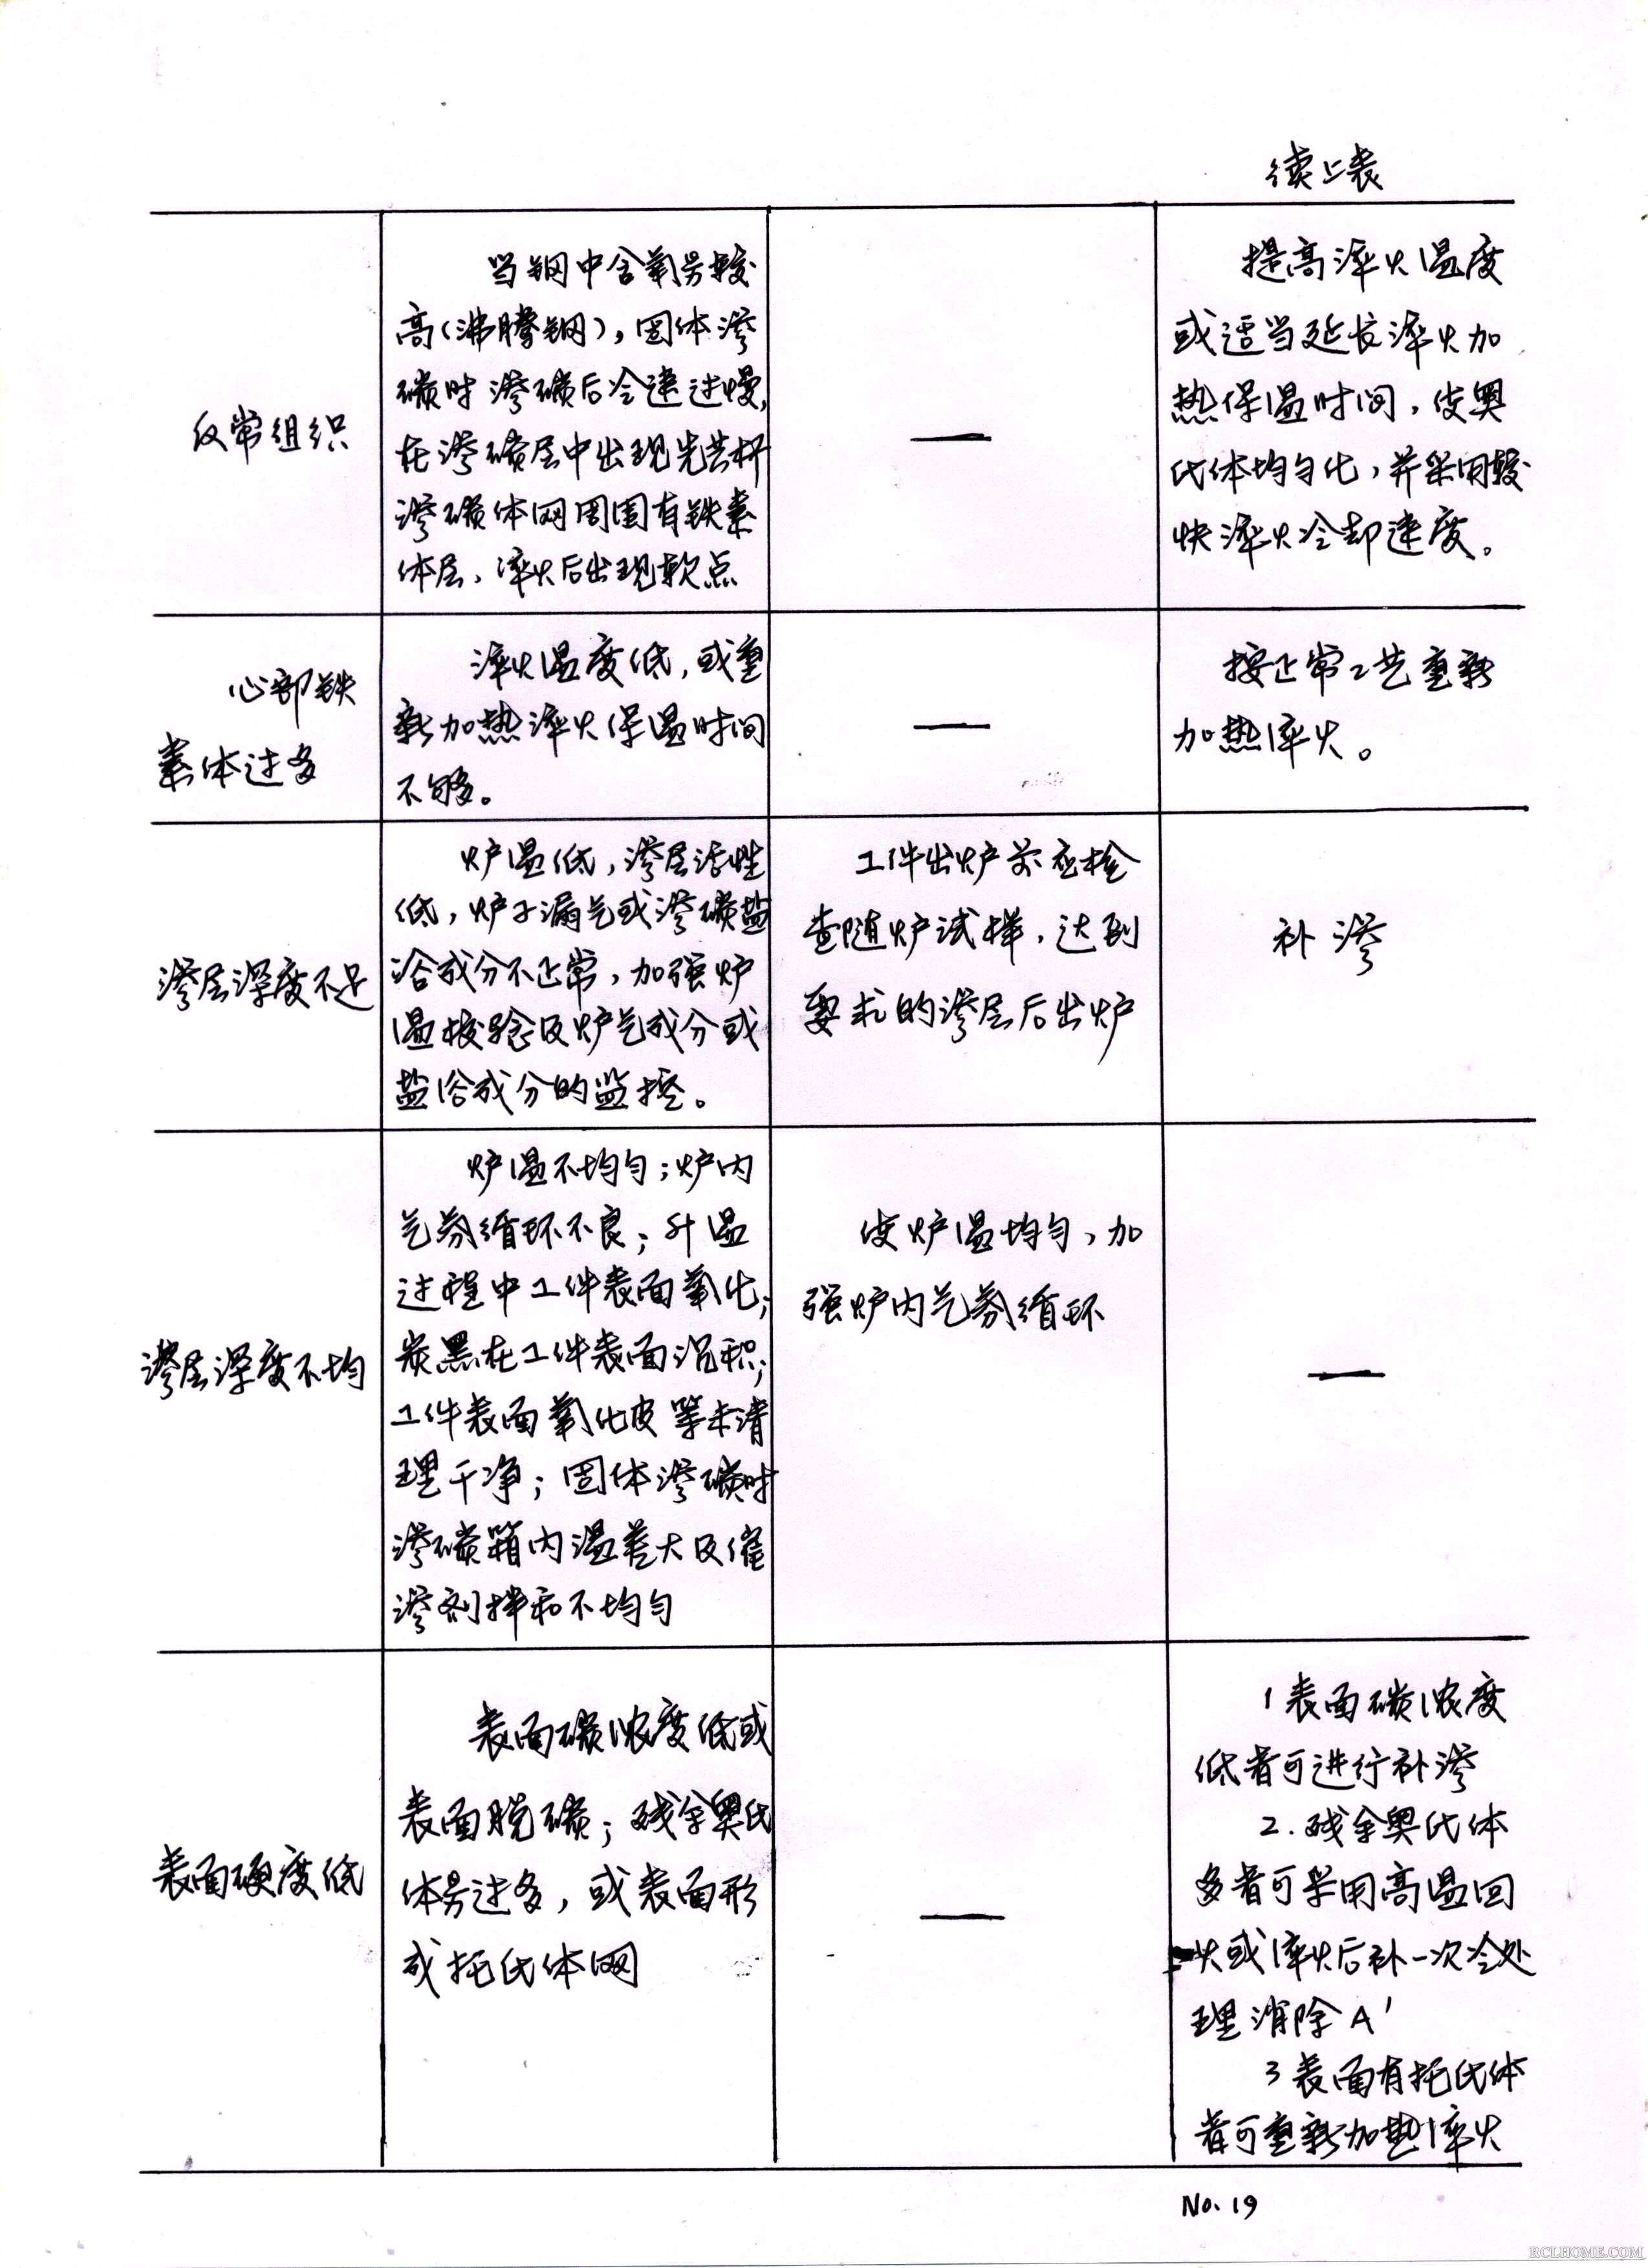 续上表
反常组织
当钢中含氧量较
高(沸腾钢)，固体渗
碳时渗碳后冷速过慢，
在渗碳层中出现先共析
渗碳体网周围有铁素
体层、淬火后出现软点
—
提高淬火温度
或适当延长淬火加
热保温时间，使奥
氏体均匀化，并采用较
快淬火冷却速度。
心部铁
素体过多
淬火温度低，或重
新加热淬火保温时间
不够。
—
按正常工艺重新
加热淬火。
渗层深度不足
炉温低，渗层活性
低，炉子漏气或渗碳盐
浴成分不正常，加强炉
温校验及炉气成分或
盐浴成分的监控。
工件出炉前应检
查随炉试样，达到
要求的渗层后出炉
补渗
渗层深度不均
炉温不均匀；炉内
气氛循环不良；升温
过程中工件表面氧化；
炭黑在工件表面沉积；
工件表面氧化皮等未清
理干净；固体渗碳时
渗碳箱内温差大及催
渗剂拌和不均匀
使炉温均匀、加
强炉内气氛循环
—
表面硬度低
表面碳浓度低或
表面脱碳；残余奥氏
体量过多，或表面形
成托氏体网
—
1 表面碳浓度
低者可进行补渗
2. 残余奥氏体
多者可采用高温回
火或淬火后补一次冷处
理消除A'
3 表面有托氏体
者可重新加热淬火
No. 19
RCLHOME.COM